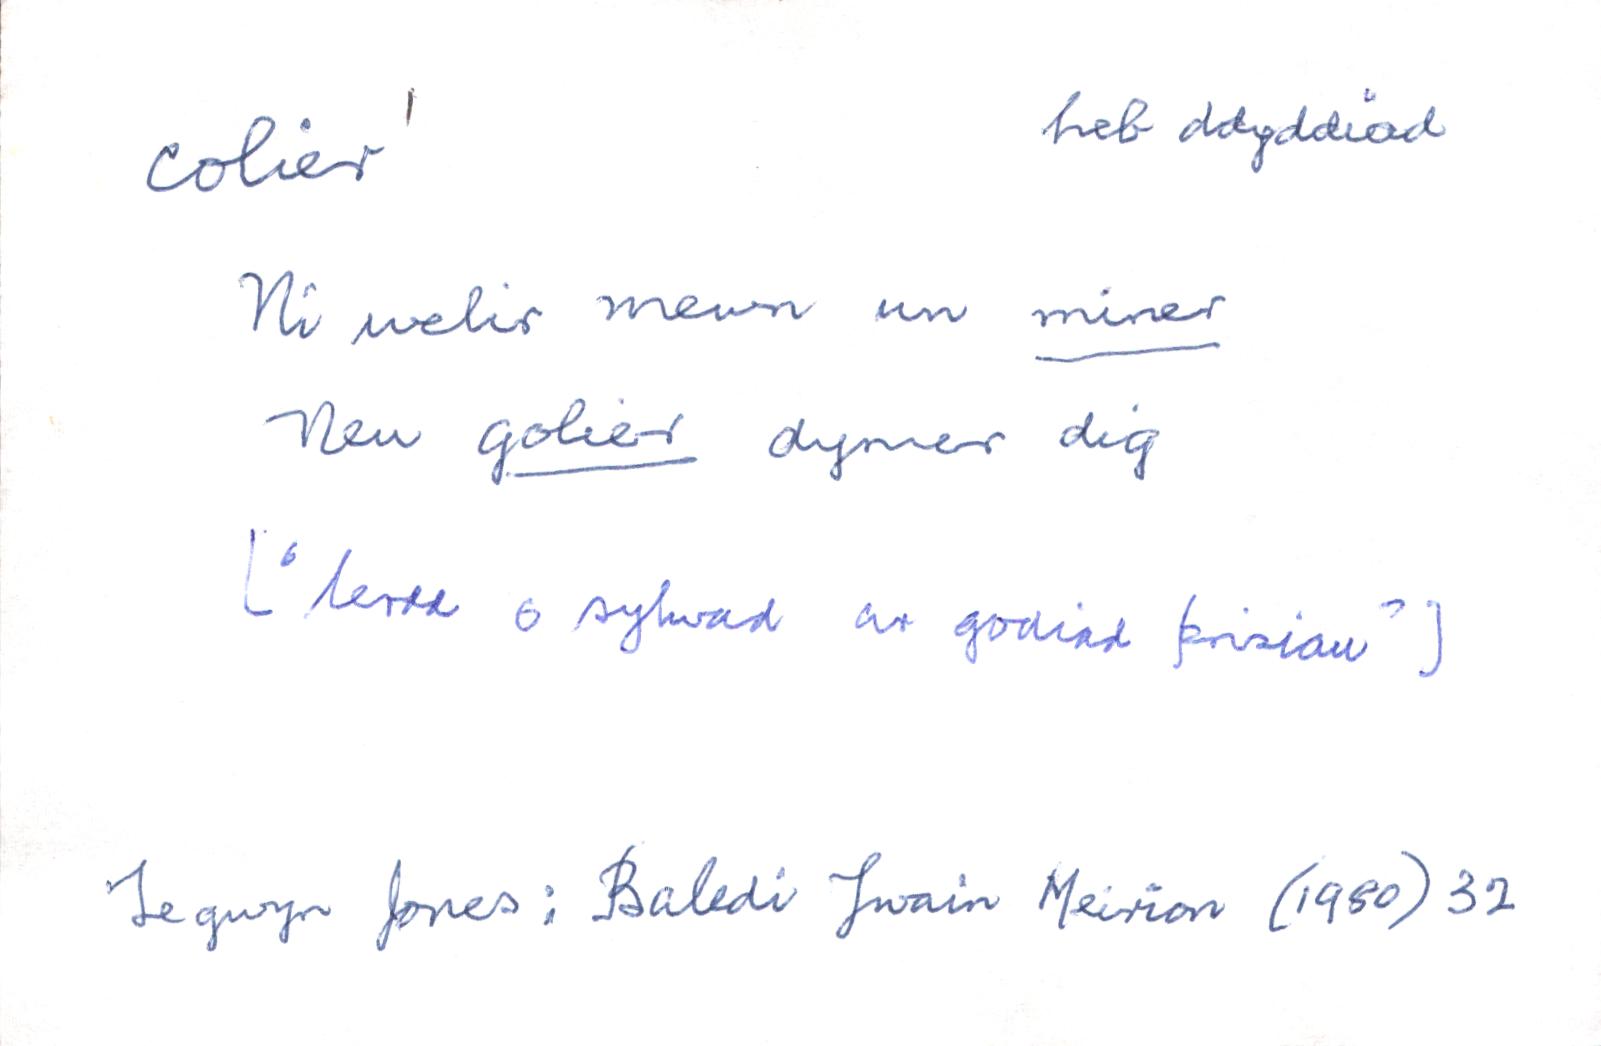 colier'
heb ddyddiad
Ni welir mewn un miner
Neu golier dymer dig
[‘Cerdd o sylwad ar godiad prisiau’]
Tegwyn Jones: Baledi Ywain Meirion (1980) 32